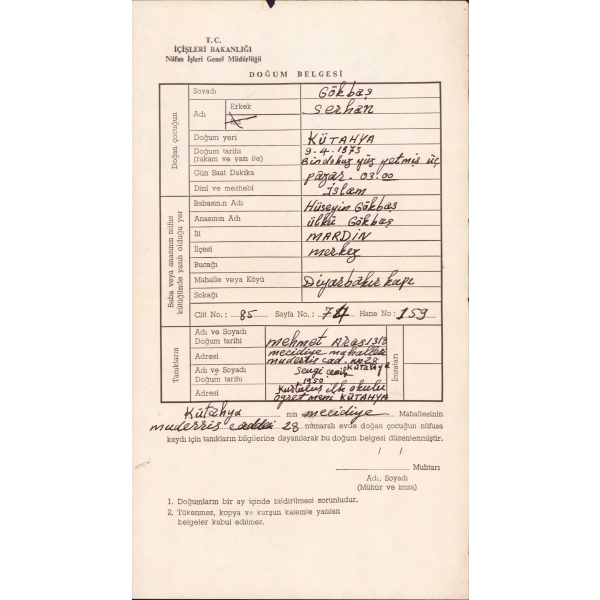 T. C.
İÇİŞLERİ BAKANLIĞI
Nüfus İşleri Genel Müdürlüğü
DOĞUM BELGESİ
Doğan çocuğun
Soyadı Gökbaş
Adı Erkek Serhan
Kız
Doğum yeri KÜTAHYA
Doğum tarihi (rakam ve yazı ile) 9-4-1973
Bindokuz yüz yetmiş üç
Gün Saat Dakika pazar. 03.00
Dini ve mezhebi İslam
Baba veya anasının nüfus kütüğünde yazılı olduğu yer
Babasının Adı Hüseyin Gökbaş
Anasının Adı ülkü Gökbaş
İli MARDİN
İlçesi merkez
Bucağı
Mahalle veya Köyü Diyarbakır kapı
Sokağı
Cilt No.: 85 Sayfa No.: Hane No: 159
Tanıkların
Adı ve Soyadı
Doğum tarihi mehmet Aras 1318
Adresi mecidiye mahallesi
muderris cad. no 28
Kütahya
Adı ve Soyadı Sevgi
Doğum tarihi 1950
Adresi Kurtuluş ilk okulu
öğretmeni KÜTAHYA
İmzaları
Kütahya nın mecidiye Mahallesinin
muderris caddesi 28 numaralı evde doğan çocuğun nüfusa
kaydı için tanıkların bilgilerine dayanılarak bu doğum belgesi düzenlenmiştir.
/ /
Muhtarı
Adı, Soyadı
(Mühür ve imza)
1. Doğumların bir ay içinde bildirilmesi zorunludur.
2. Tükenmez, kopya ve kurşun kalemle yazılan
belgeler kabul edilmez.